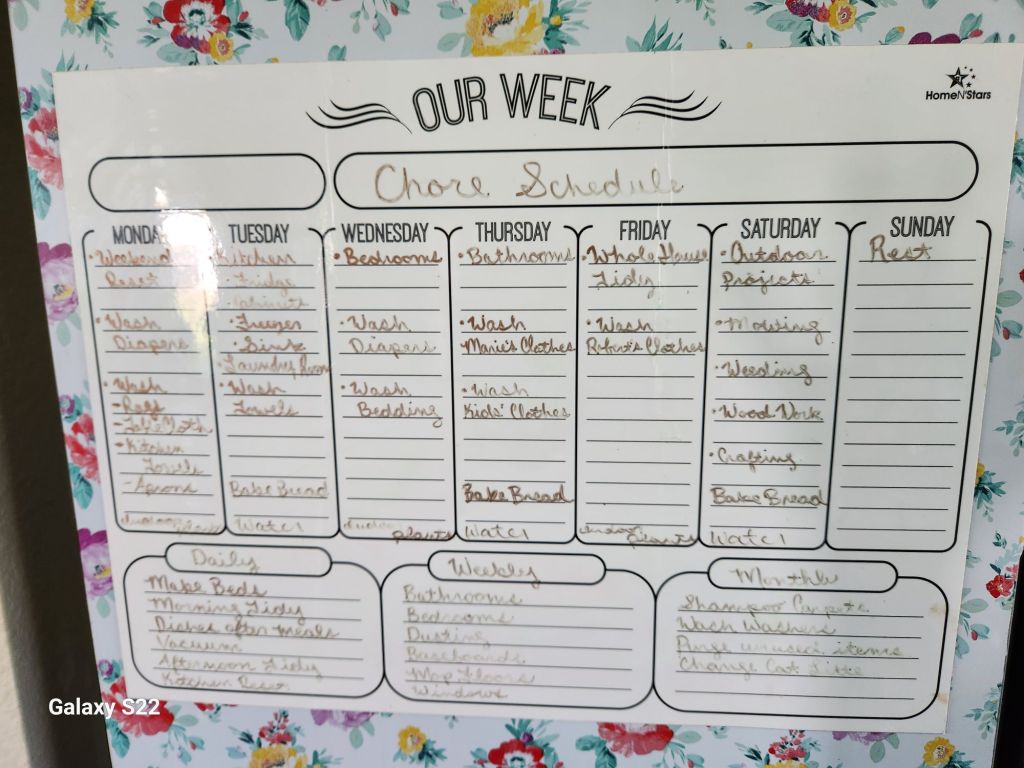 OUR WEEK
HomeN'Stars
Chore Schedule
MONDAY
• Weekend
Reset
• Wash
Diapers
• Wash
- Rags
- Kitchen
Towels
- Aprons
TUESDAY
Kitchen
• Fridge
• Cabinets
• Freezer
• Sink
• Laundry Room
• Wash
Towels
Bake Bread
Water
WEDNESDAY
• Bedrooms
• Wash
Diapers
• Wash
Bedding
indoor plants
THURSDAY
• Bathrooms
• Wash
Marie's Clothes
• Wash
Kids' Clothes
Bake Bread
Water
FRIDAY
• Whole House
Tidy
• Wash
Robert's Clothes
indoor plants
SATURDAY
• Outdoor
Projects
• Mowing
• Weeding
• Wood Work
• Crafting
Bake Bread
Water
SUNDAY
Rest
Daily
Make Beds
Morning Tidy
Dishes after meals
Vacuum
Afternoon Tidy
Kitchen Reset
Weekly
Bathrooms
Bedrooms
Dusting
Baseboards
Mop Floors
Windows
Monthly
Shampoo Carpets
Wash Washers
Purge unused items
Change Cat Litter
Galaxy S22